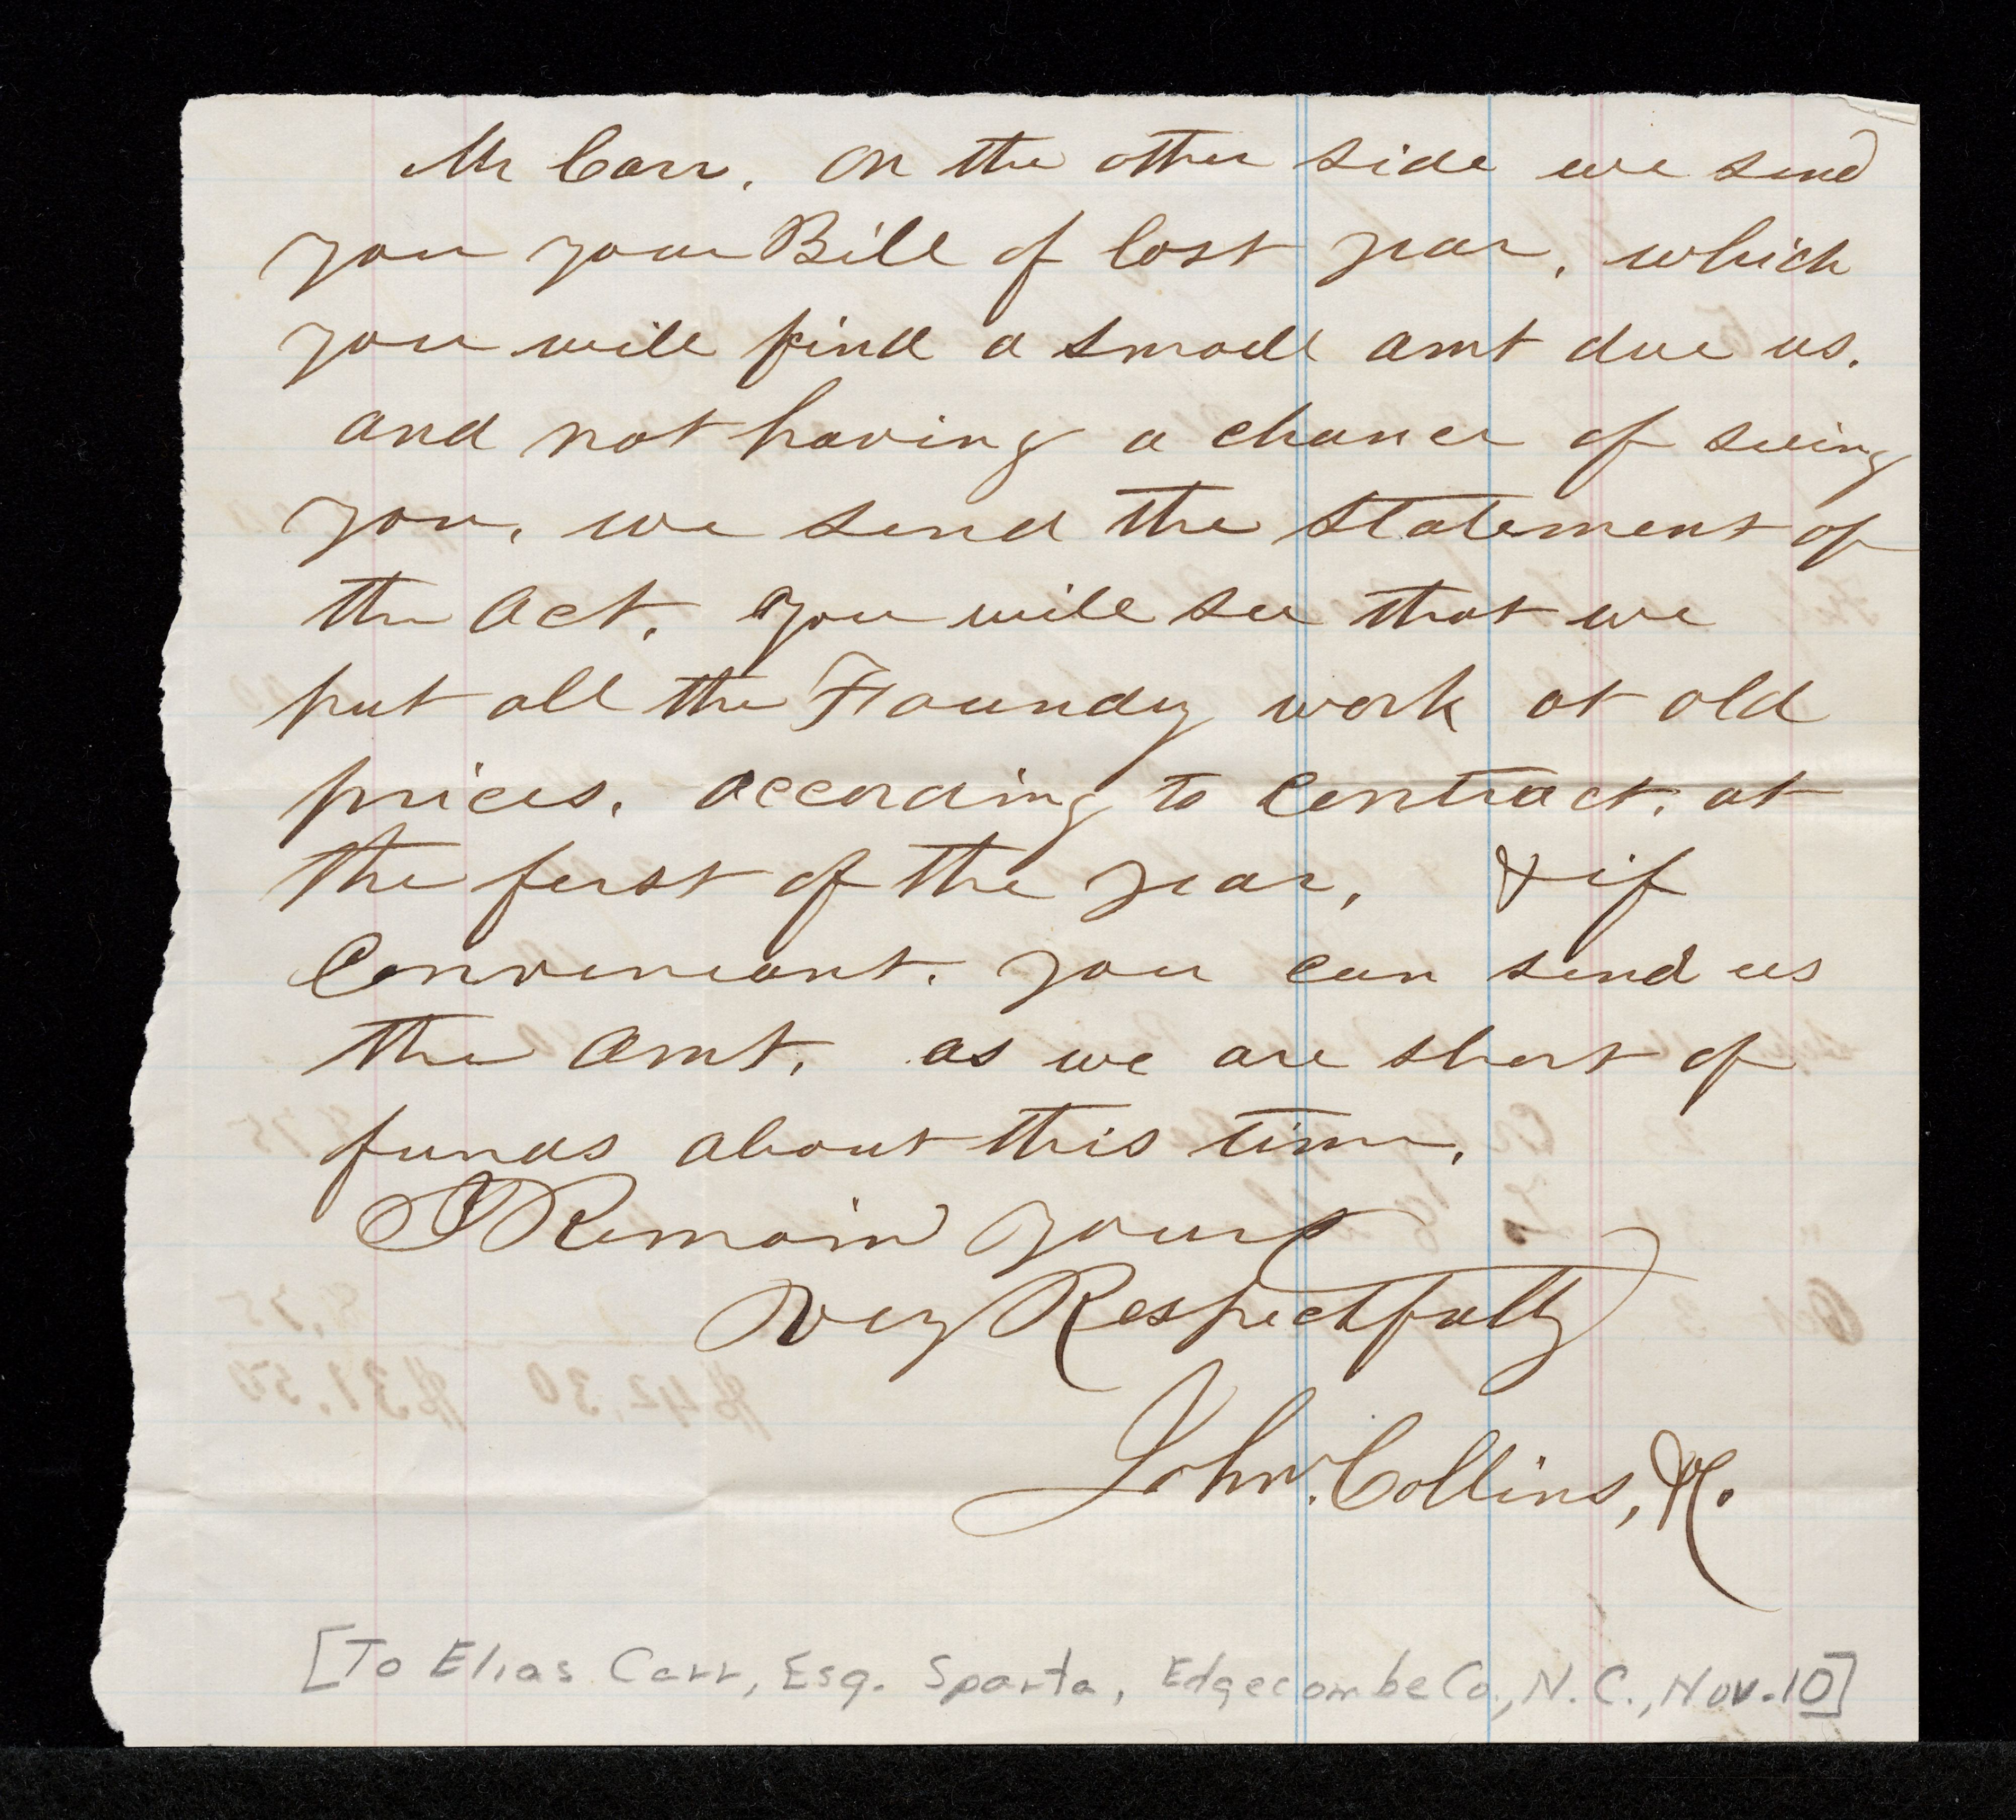 Mr Carr. On the other side we send
you your Bill of last year, which
you will find a small amt due us.
and not having a chance of seeing
you, we send the statement of
the Act. you will see that we
put all the Foundry work at old
prices. according to Contract. at
the first of the year, & if
Conveniant. you can send us
the Amt, as we are short of
funds about this time.
I Remain yours
Very Respectfully
John. Collins,
[To Elias Carr, Esq. Sparta, Edgecombe Co., N.C., Nov. 10]
$42.30 $37.50